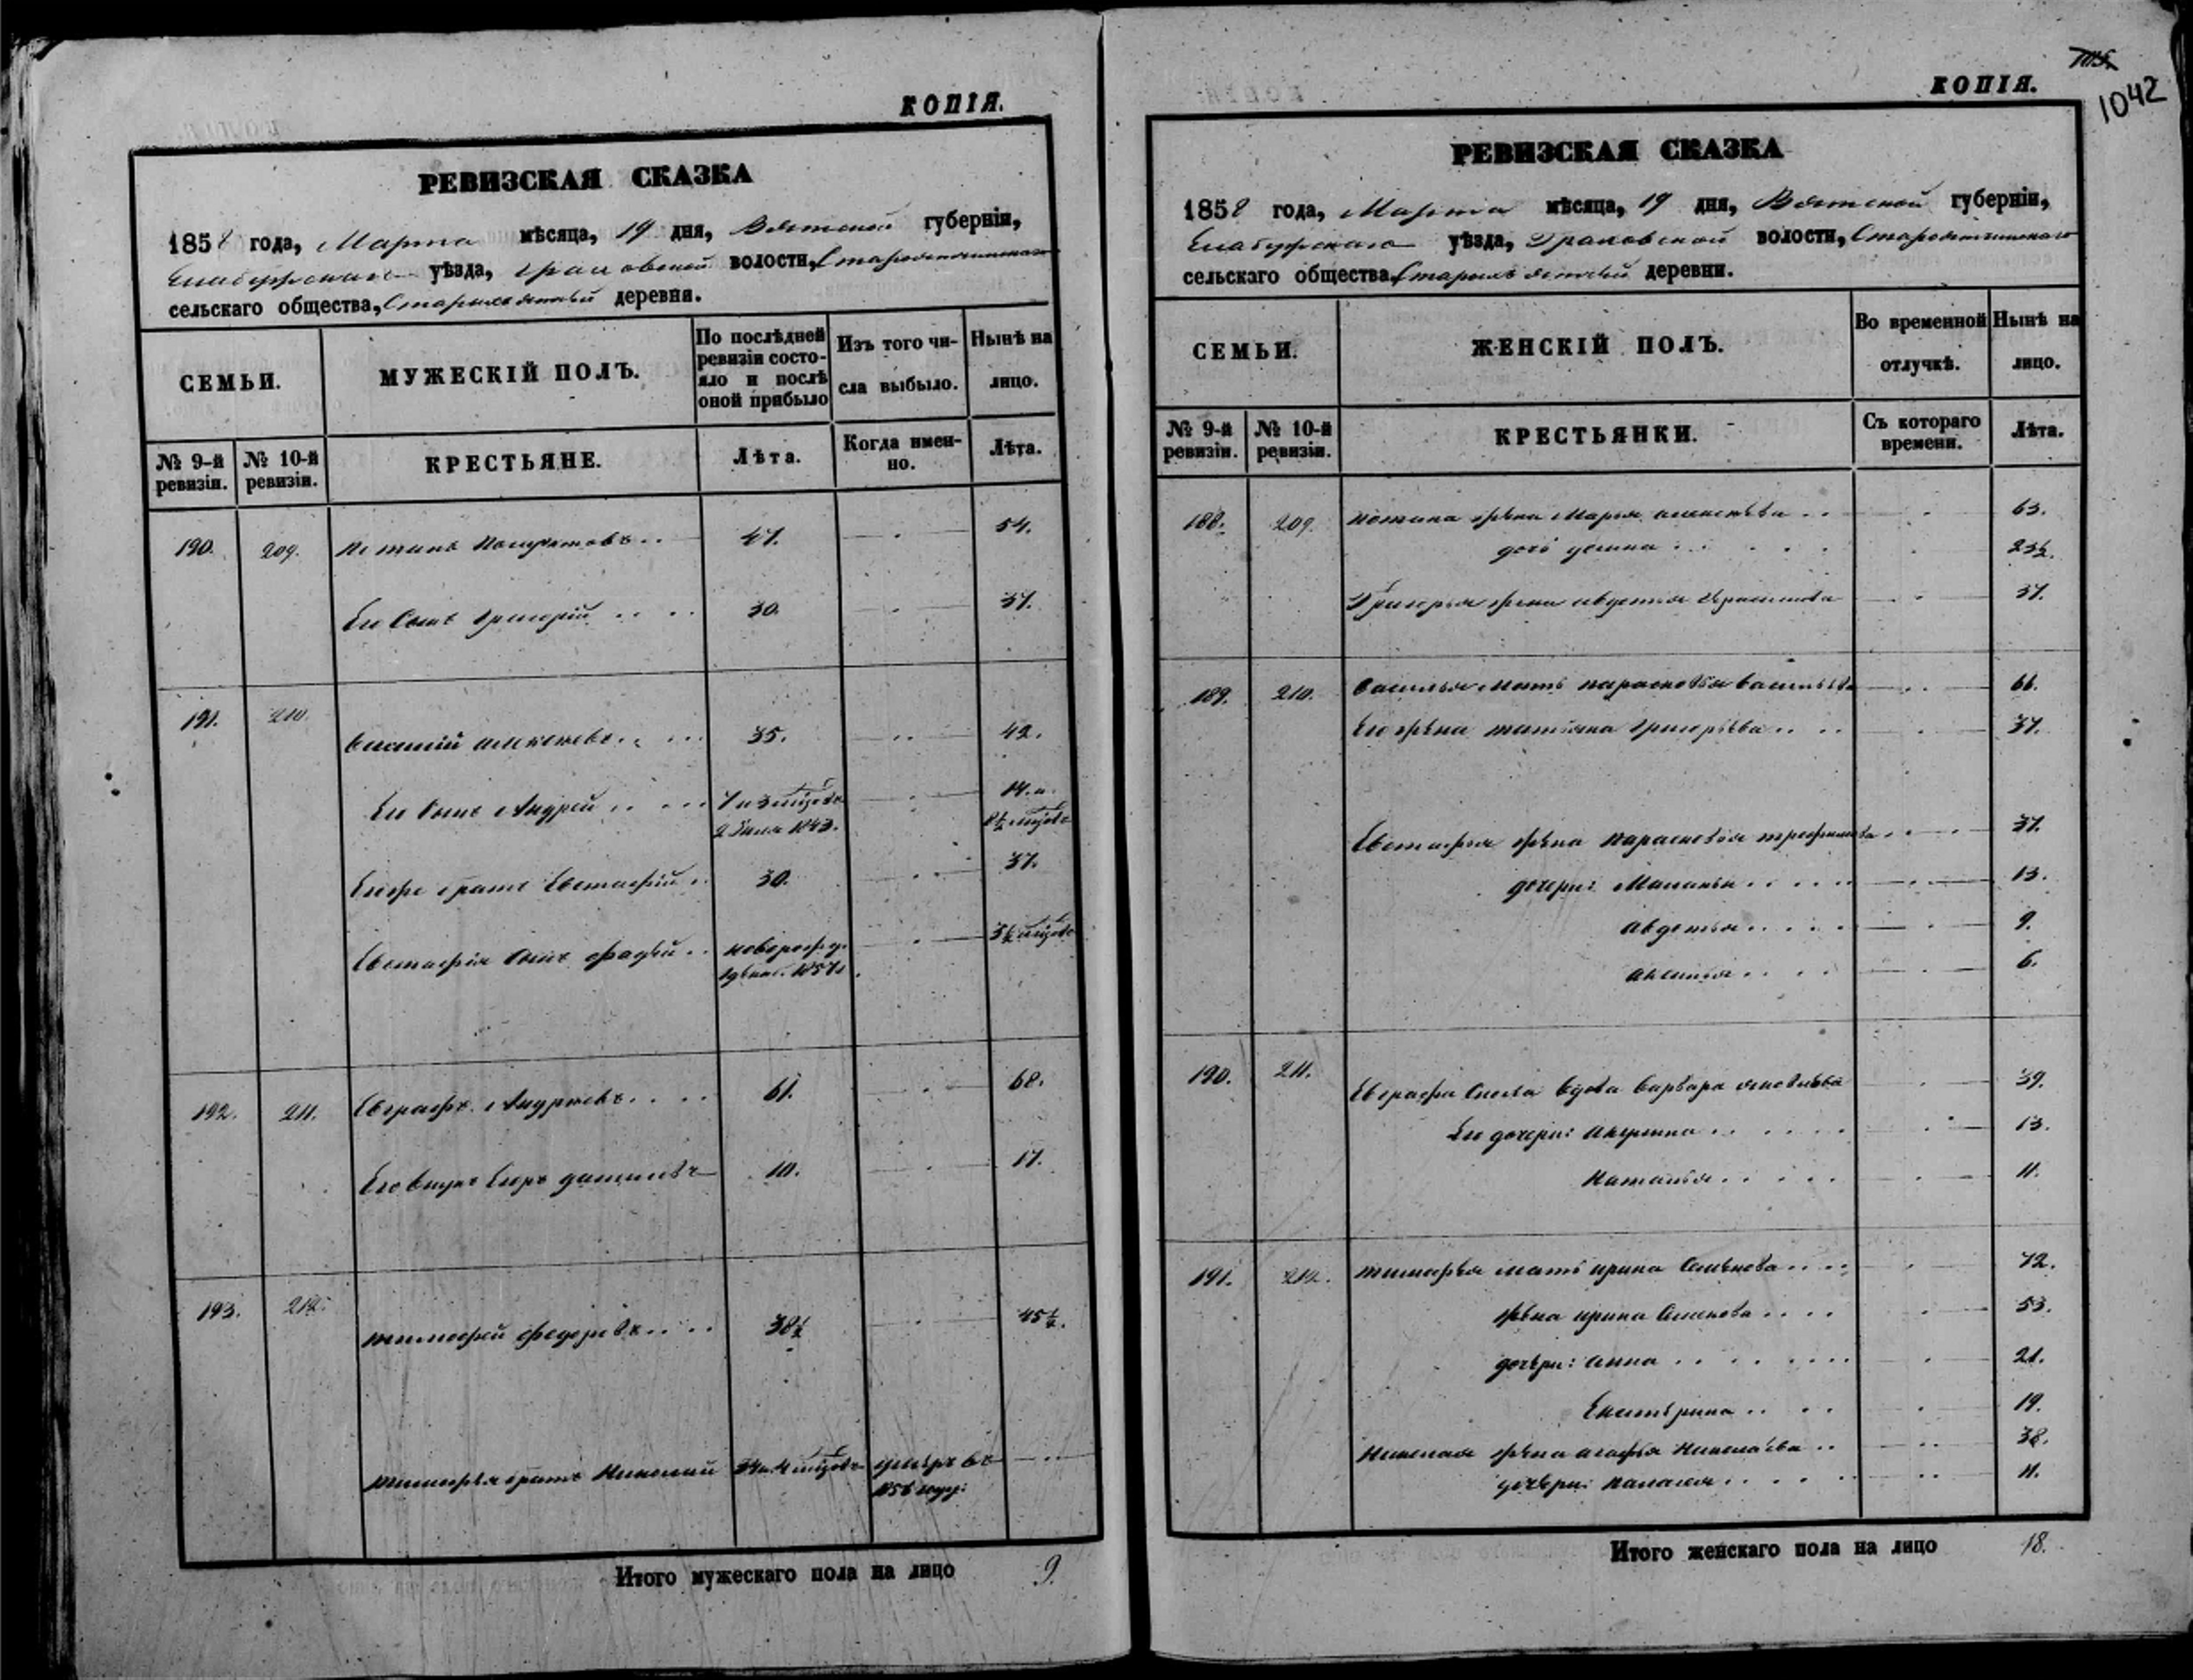 КОПІЯ.
РЕВИЗСКАЯ СКАЗКА
1858 года, Марта мѣсяца, 19 дня, Вятской губерніи,
Елабужскаго уѣзда, Граховской волости,
сельскаго общества, деревни.
СЕМЬИ.
МУЖЕСКІЙ ПОЛЪ.
По послѣдней ревизіи состояло и послѣ оной прибыло
Изъ того числа выбыло.
Нынѣ на лицо.
№ 9-й ревизіи.
№ 10-й ревизіи.
КРЕСТЬЯНЕ.
Лѣта.
Когда именно.
Лѣта.
190. 209. 47. 54.
Его Сынъ Григорій 30. 37.
191. 210. Василій Алексѣевъ 35. 42.
Его Сынъ Андрей 7 и 3 мѣсяцовъ 14. и
1843. 8½ мѣсяцовъ
Его же братъ Евстафій 30. 37.
Евстафія Сынъ Фадѣй новорожд. 3½ мѣсяцовъ
1857
192. 211. Евграфъ Андреевъ 61. 68.
Его внукъ Егоръ Даниловъ 10. 17.
193. 212. Тимофей Федоровъ 38½ 45½.
Тимофѣя братъ Николай 4 мѣсяцовъ умеръ въ
1856 году.
Итого мужескаго пола на лицо 9.
КОПІЯ.
1042
РЕВИЗСКАЯ СКАЗКА
1858 года, Марта мѣсяца, 19 дня, Вятской губерніи,
Елабужскаго уѣзда, Граховской волости,
сельскаго общества, деревни.
СЕМЬИ.
ЖЕНСКІЙ ПОЛЪ.
Во временной отлучкѣ.
Нынѣ на лицо.
№ 9-й ревизіи.
№ 10-й ревизіи.
КРЕСТЬЯНКИ.
Съ котораго времени.
Лѣта.
188. 209. жена Марья Алексѣева 63.
дочь 23½.
Григорья жена Авдотья Герасимова 37.
189. 210. Василья Мать Парасковья Васильева 66.
Его жена Татьяна Григорьева 37.
Евстафья жена Парасковья Трофимова 37.
дочери: Маланья 13.
Авдотья 9.
Аксинья 6.
190. 211. Евграфа Сноха вдова Варвара Яковлева 39.
Ее дочери: Акулина 13.
Наталья 11.
191. 212. Тимофѣя мать Ирина Семенова 72.
жена Ирина Семенова 53.
дочери: Анна 21.
Екатерина 19.
Николая жена Агафья Николаева 38.
дочери: Палагея 11.
Итого женскаго пола на лицо 18.